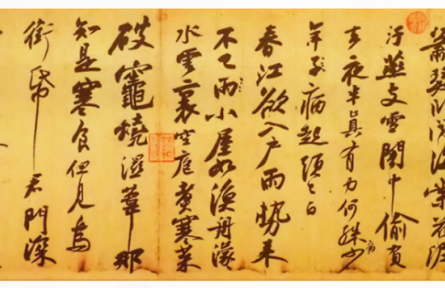 蕭瑟臥聞海棠花泥
汙燕支雪闇中偷負
去夜半真有力何殊少
病
年子病起頭已白
春江欲入戶雨勢來
不已雨小屋如漁舟濛
水雲裏空庖煮寒菜
破竈燒濕葦那
知是寒食但見烏
銜帋君門深